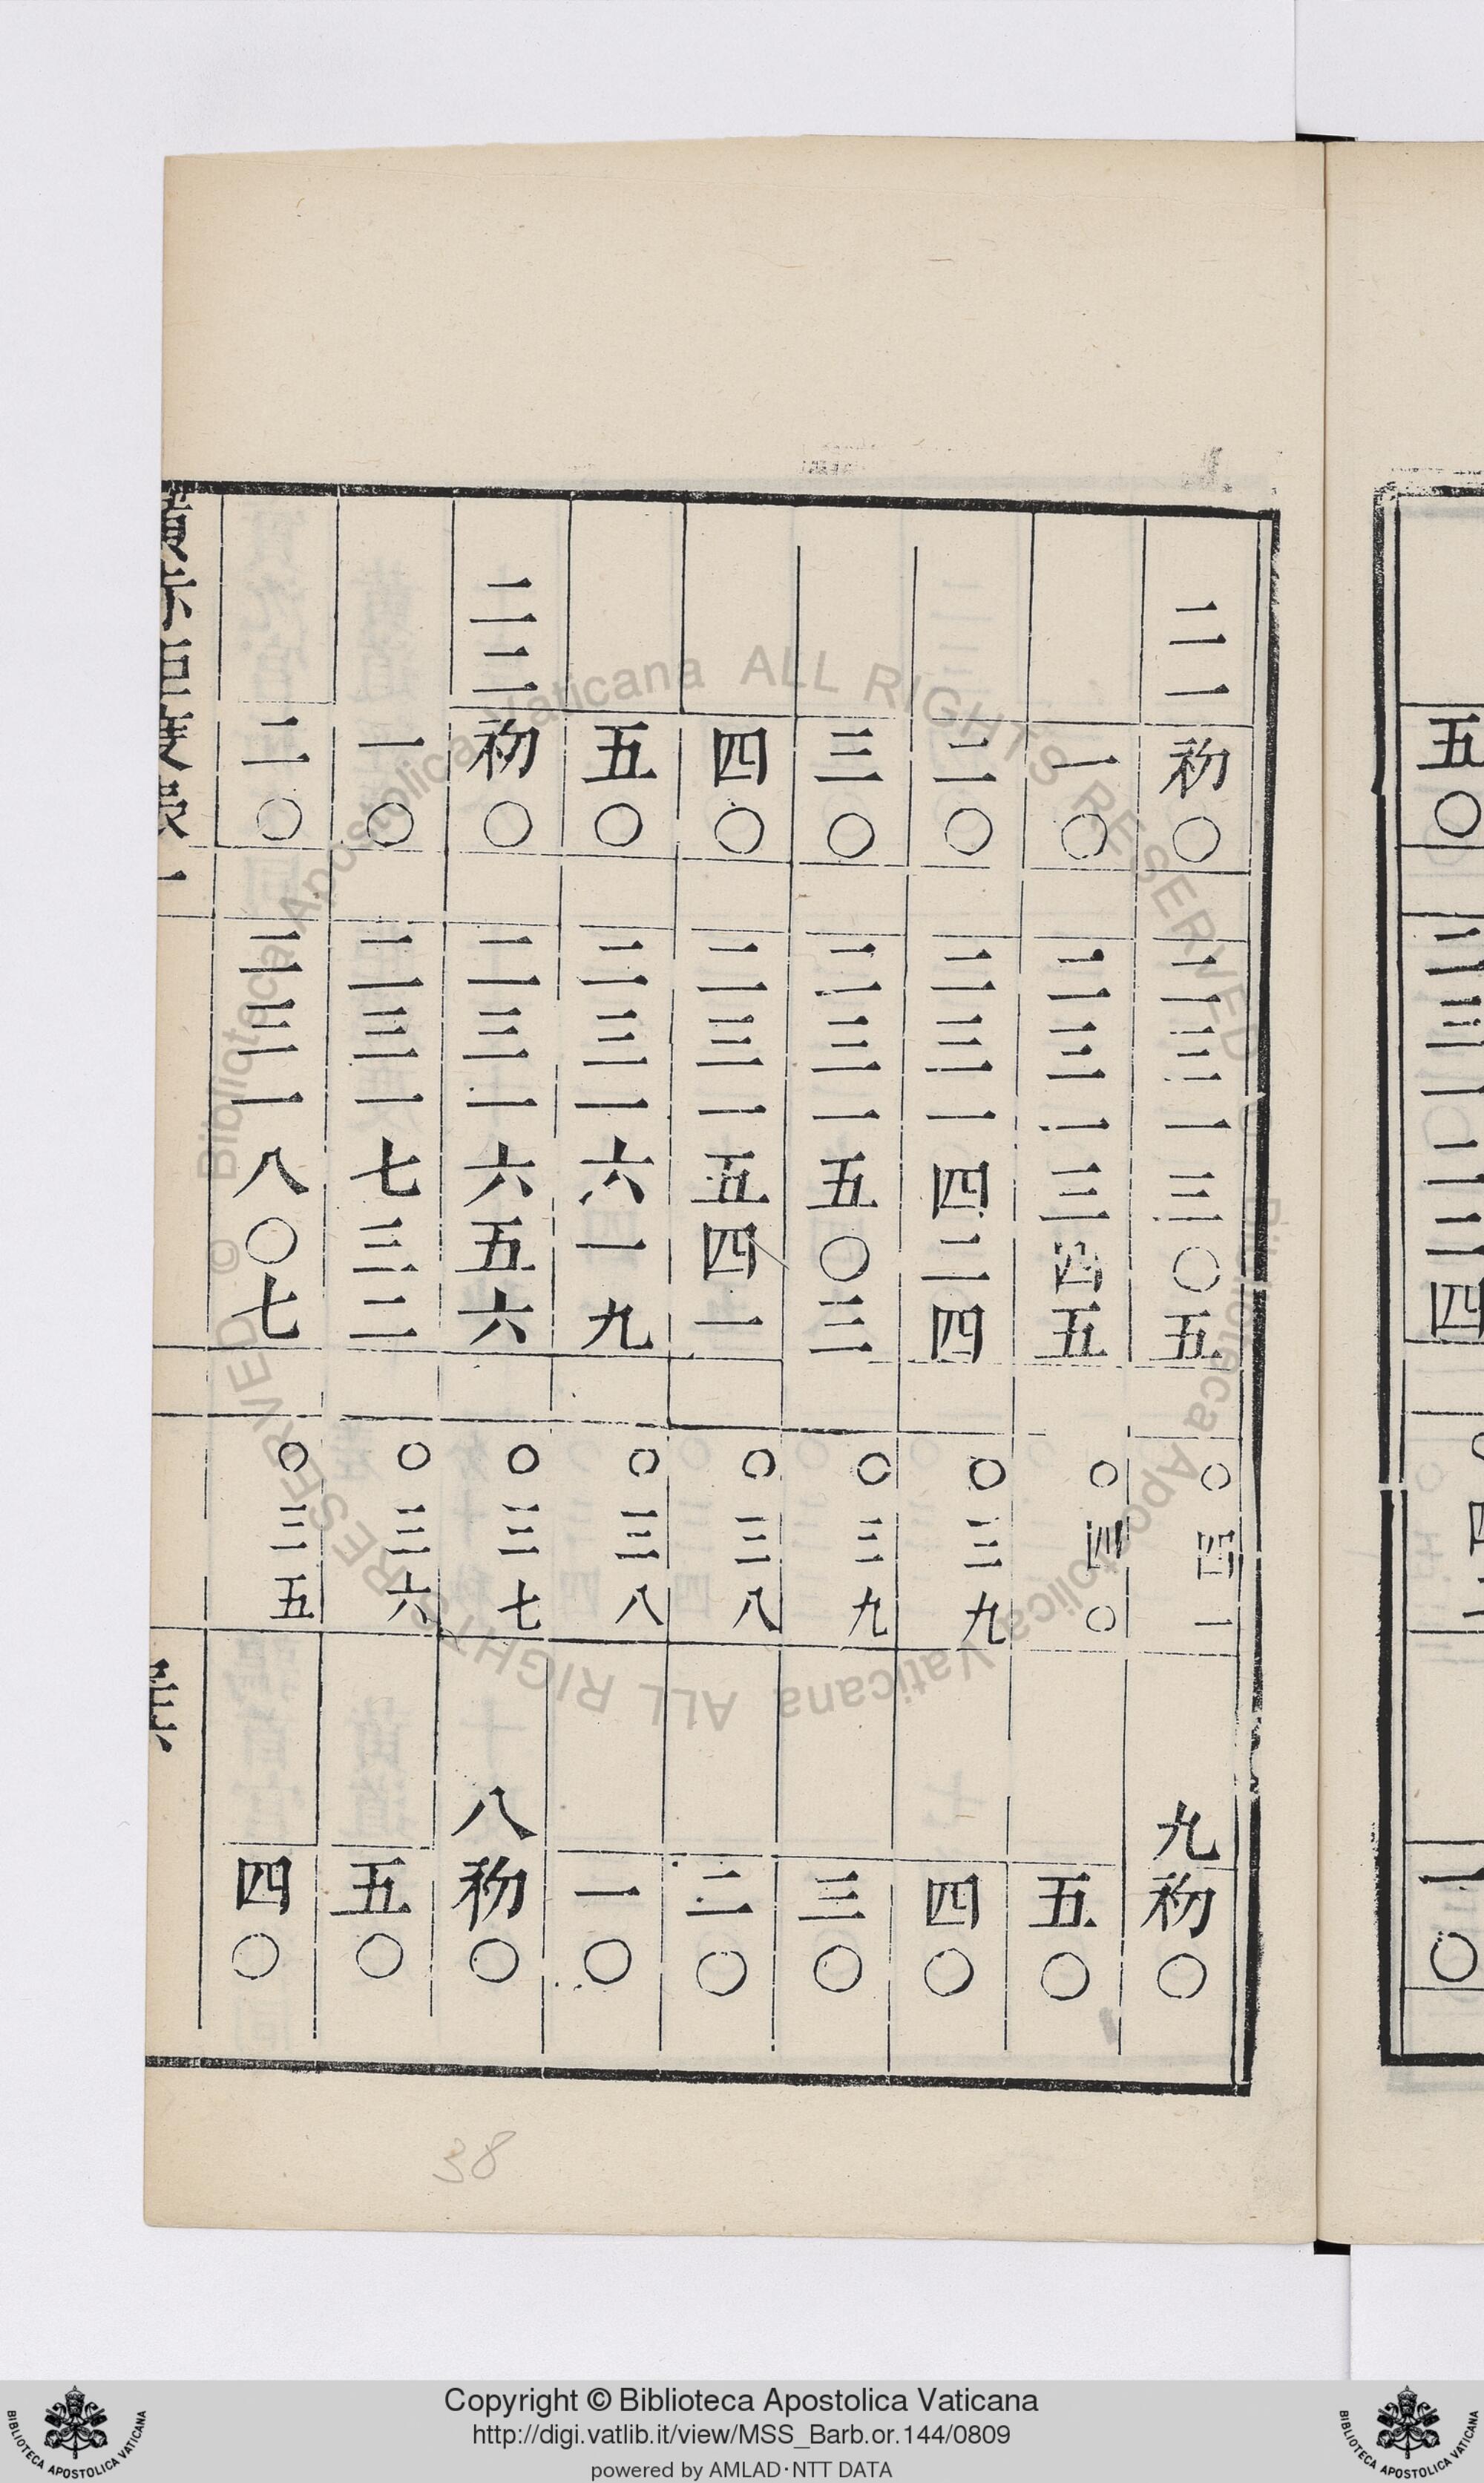 五〇 二三一二二四 〇四一 一〇
二一 初〇 二三一三〇五 〇四一 九 初〇
一〇 二三一三四五 〇四〇 五〇
二〇 二三一四二四 〇三九 四〇
三〇 二三一五〇三 〇三九 三〇
四〇 二三一五四一 〇三八 二〇
五〇 二三一六一九 〇三八 一〇
二二 初〇 二三一六五六 〇三七 八 初〇
一〇 二三一七三二 〇三六 五〇
二〇 二三一八〇七 〇三五 四〇
38
Copyright © Biblioteca Apostolica Vaticana
http://digi.vatlib.it/view/MSS_Barb.or.144/0809
powered by AMLAD·NTT DATA
BIBLIOTECA APOSTOLICA VATICANA
BIBLIOTECA APOSTOLICA VATICANA